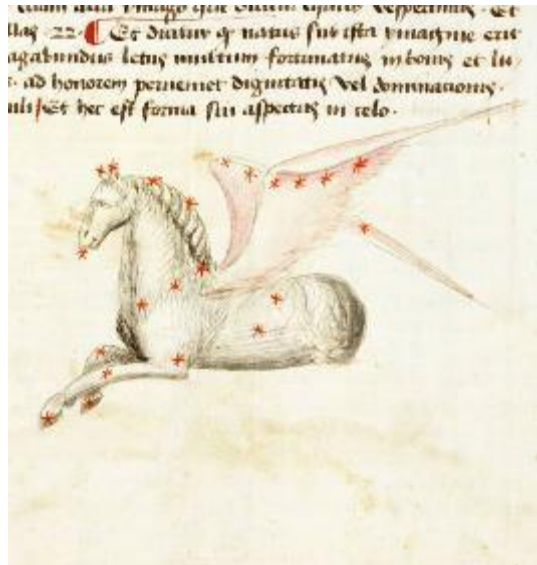 ymago que
las 22 · Et dicitur qʒ natus sub ista ymagine erit
agabundus letus multum fortunatus in bonis et lu
· ad honorem perueniet dignitatis vel dominationis ·
uli Et hec est forma sui aspectus in celo ·